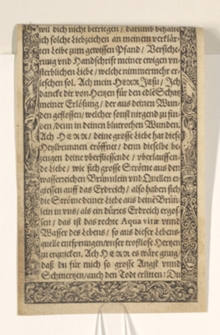 wil dich nicht betriegen / darumb behalte
ich solche Liebzeichen an meinem verklär-
ten Leibe zum gewissen Pfand / Versiche-
rung vnd Handschrifft meiner ewigen vn-
sterblichen Liebe / welche nimmermehr er-
leschen sol. Ach mein HERR JEsu / Jch
dancke dir von Hertzen für den edlē Schatz
meiner Erlösung / der aus deinen Wun-
den geflossen / welcher sonst nirgend zu fin-
den / denn in deinen blutrothen Wunden.
Ach HERR / deine grosse Liebe hat diese
Heylbrunnen eröffnet / denn dieselbe be-
zeugen deine oberfliessende / vberlauffen-
de Liebe / wie sich grosse Ströme aus den
wasserreichen Brünnlein vnd Quellen er-
giessen auff das Erdreich / also haben sich
die Ströme deiner Liebe aus deinē Brün-
lein in vns / als ein dürres Erdreich ergos-
sen / das ist das rechte Aqua vitæ vnnd
Wasser des Lebens / so aus dieser Lebens-
quelle entsprungen / vnser trostlose Hertzen
zu erquicken. Ach HERR es wäre gnug /
daß du für mich so grosse Angst vnnd
Schmertzen / auch den Todt erlitten: Du